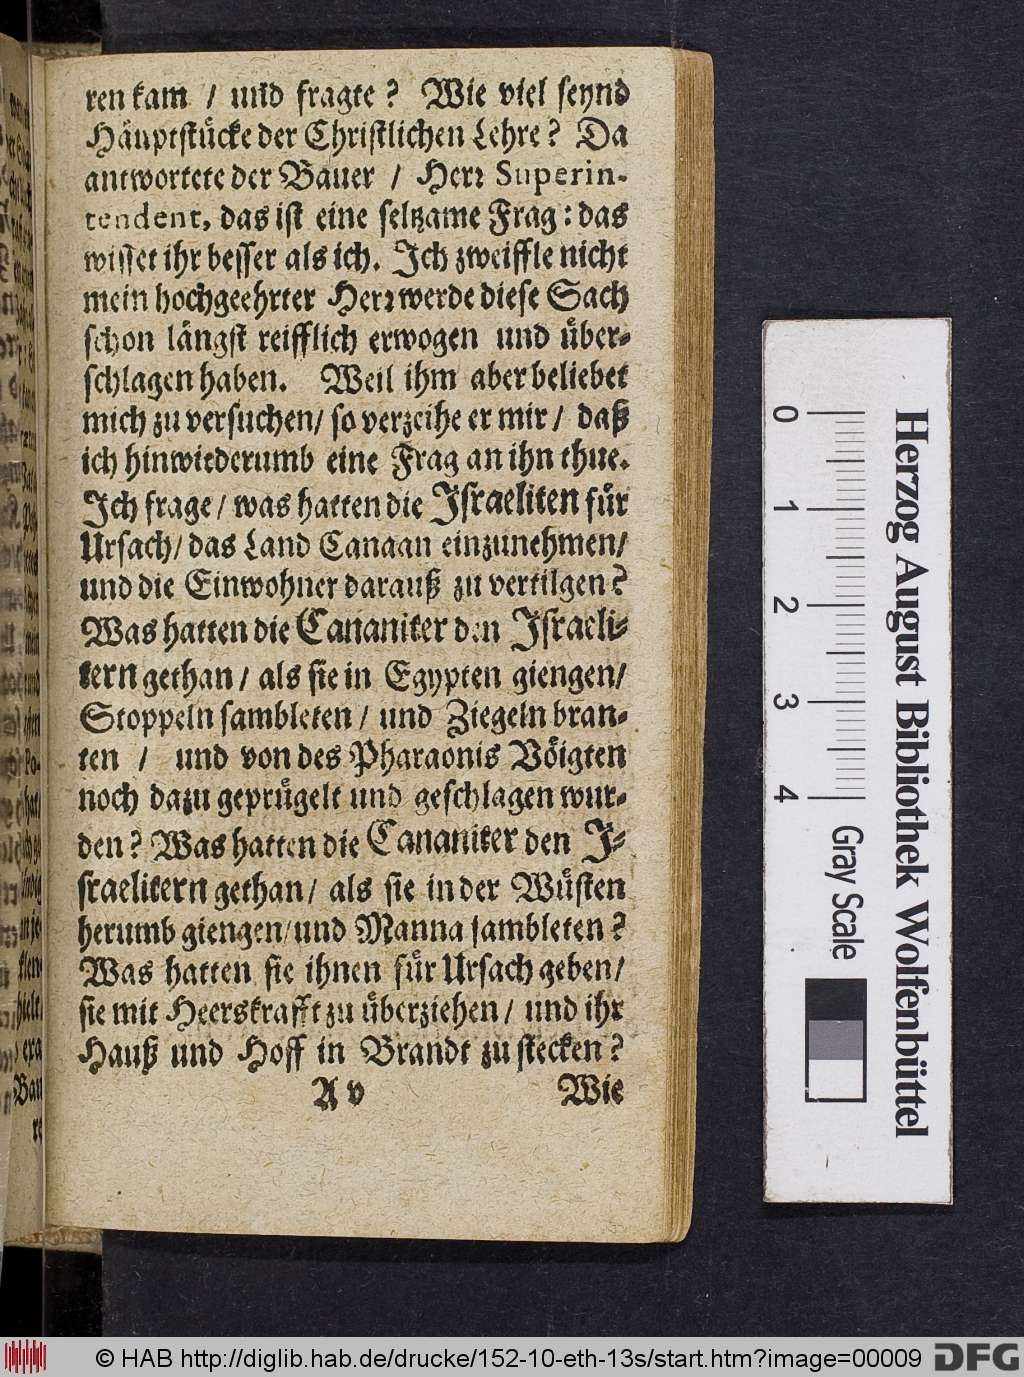 ren kam / und fragte? Wie viel seynd
Häuptstücke der Christlichen Lehre? Da
antwortete der Bauer / Herr Superin-
tendent, das ist eine seltzame Frag: das
wisset ihr besser als ich. Ich zweiffle nicht
mein hochgeehrter Herr werde diese Sach
schon längst reifflich erwogen und über-
schlagen haben. Weil ihm aber beliebet
mich zu versuchen/ so verzeihe er mir / daß
ich hinwiederumb eine Frag an ihn thue.
Ich frage / was hatten die Israeliten für
Ursach / das Land Canaan einzunehmen/
und die Einwohner darauß zu vertilgen?
Was hatten die Cananiter den Israeli-
tern gethan / als sie in Egypten giengen/
Stoppeln sambleten / und Ziegeln bran-
ten / und von des Pharaonis Vöigten
noch dazu geprügelt und geschlagen wur-
den? Was hatten die Cananiter den I-
sraelitern gethan / als sie in der Wüsten
herumb giengen/und Manna sambleten?
Was hatten sie ihnen für Ursach geben/
sie mit Heerskrafft zu überziehen / und ihr
Hauß und Hoff in Brandt zu stecken?
A v Wie
0 1 2 3 4
Gray Scale
Herzog August Bibliothek Wolfenbüttel
© HAB http://diglib.hab.de/drucke/152-10-eth-13s/start.htm?image=00009
DFG